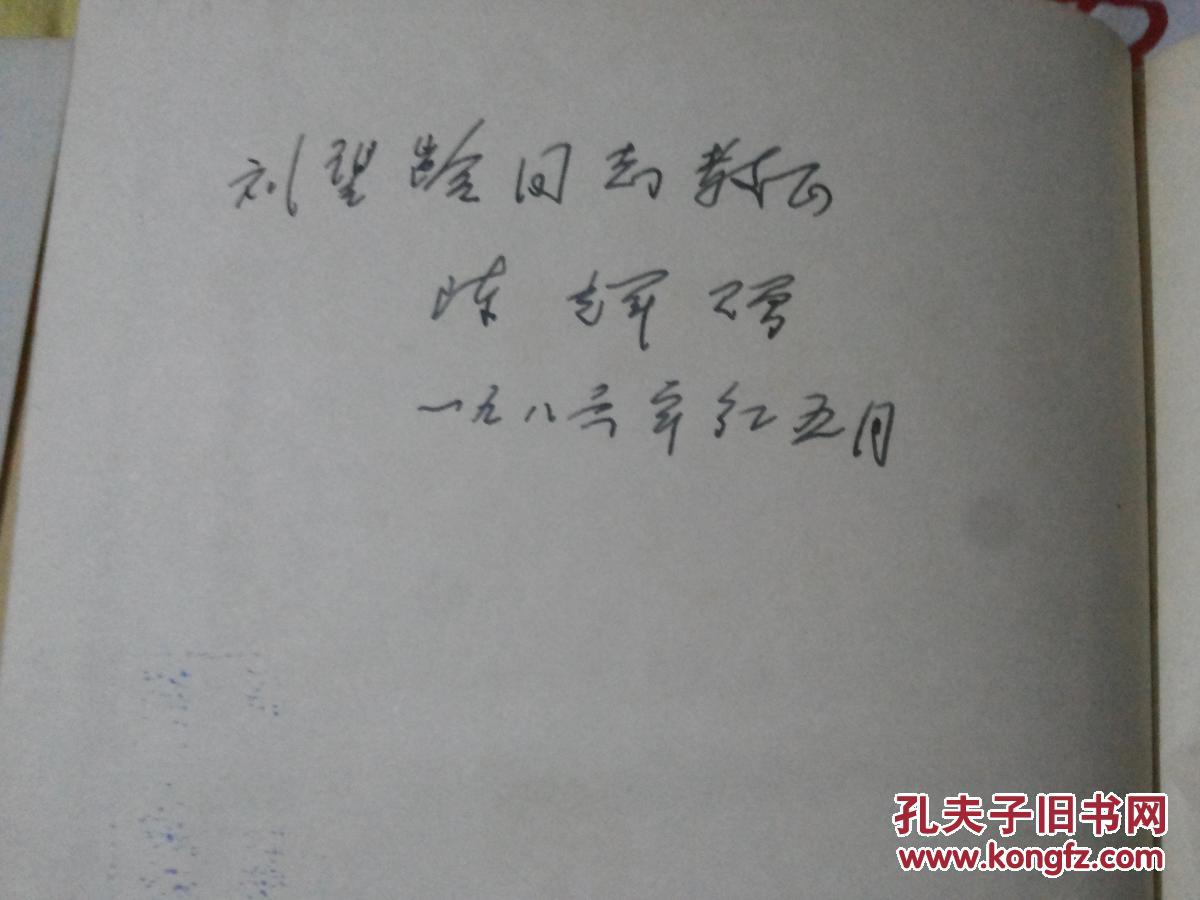 刘望龄同志教正
陈辉赠
一九八六年红五月
孔夫子旧书网
www.kongfz.com